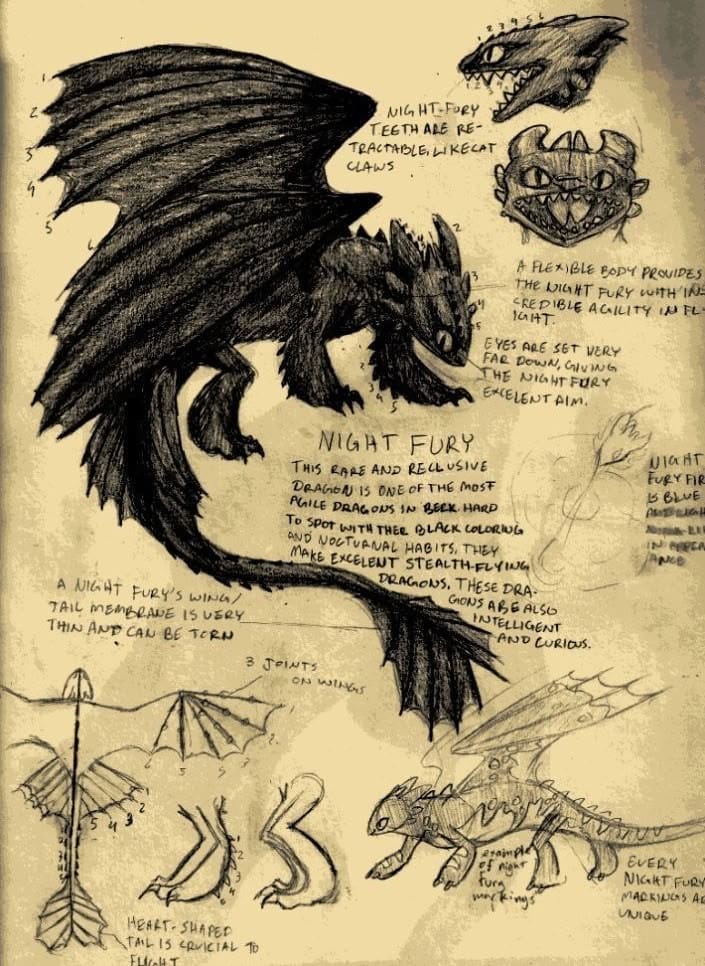 NIGHT-FURY
TEETH ARE RE-
TRACTABLE, LIKE CAT
CLAWS
A FLEXIBLE BODY PROVIDES
THE NIGHT FURY WITH IN-
CREDIBLE AGILITY IN FL-
IGHT.
EYES ARE SET VERY
FAR DOWN, GIVING
THE NIGHT FURY
EXCELENT AIM.
NIGHT FURY
THIS RARE AND RECLUSIVE
DRAGON IS ONE OF THE MOST
AGILE DRAGONS IN BERK. HARD
TO SPOT WITH THER BLACK COLORING
AND NOCTURNAL HABITS, THEY
MAKE EXCELENT STEALTH-FLYING
DRAGONS, THESE DRA-
GONS ARE ALSO
INTELLIGENT
AND CURIOUS.
NIGHT
FURY FIR
IS BLUE
A NIGHT FURY'S WING/
TAIL MEMBRANE IS VERY
THIN AND CAN BE TORN
3 JOINTS
ON WINGS
example
of night
fury
markings
EVERY
NIGHT FURY
MARKINGS AR
UNIQUE
HEART-SHAPED
TAIL IS CRUCIAL TO
FLIGHT